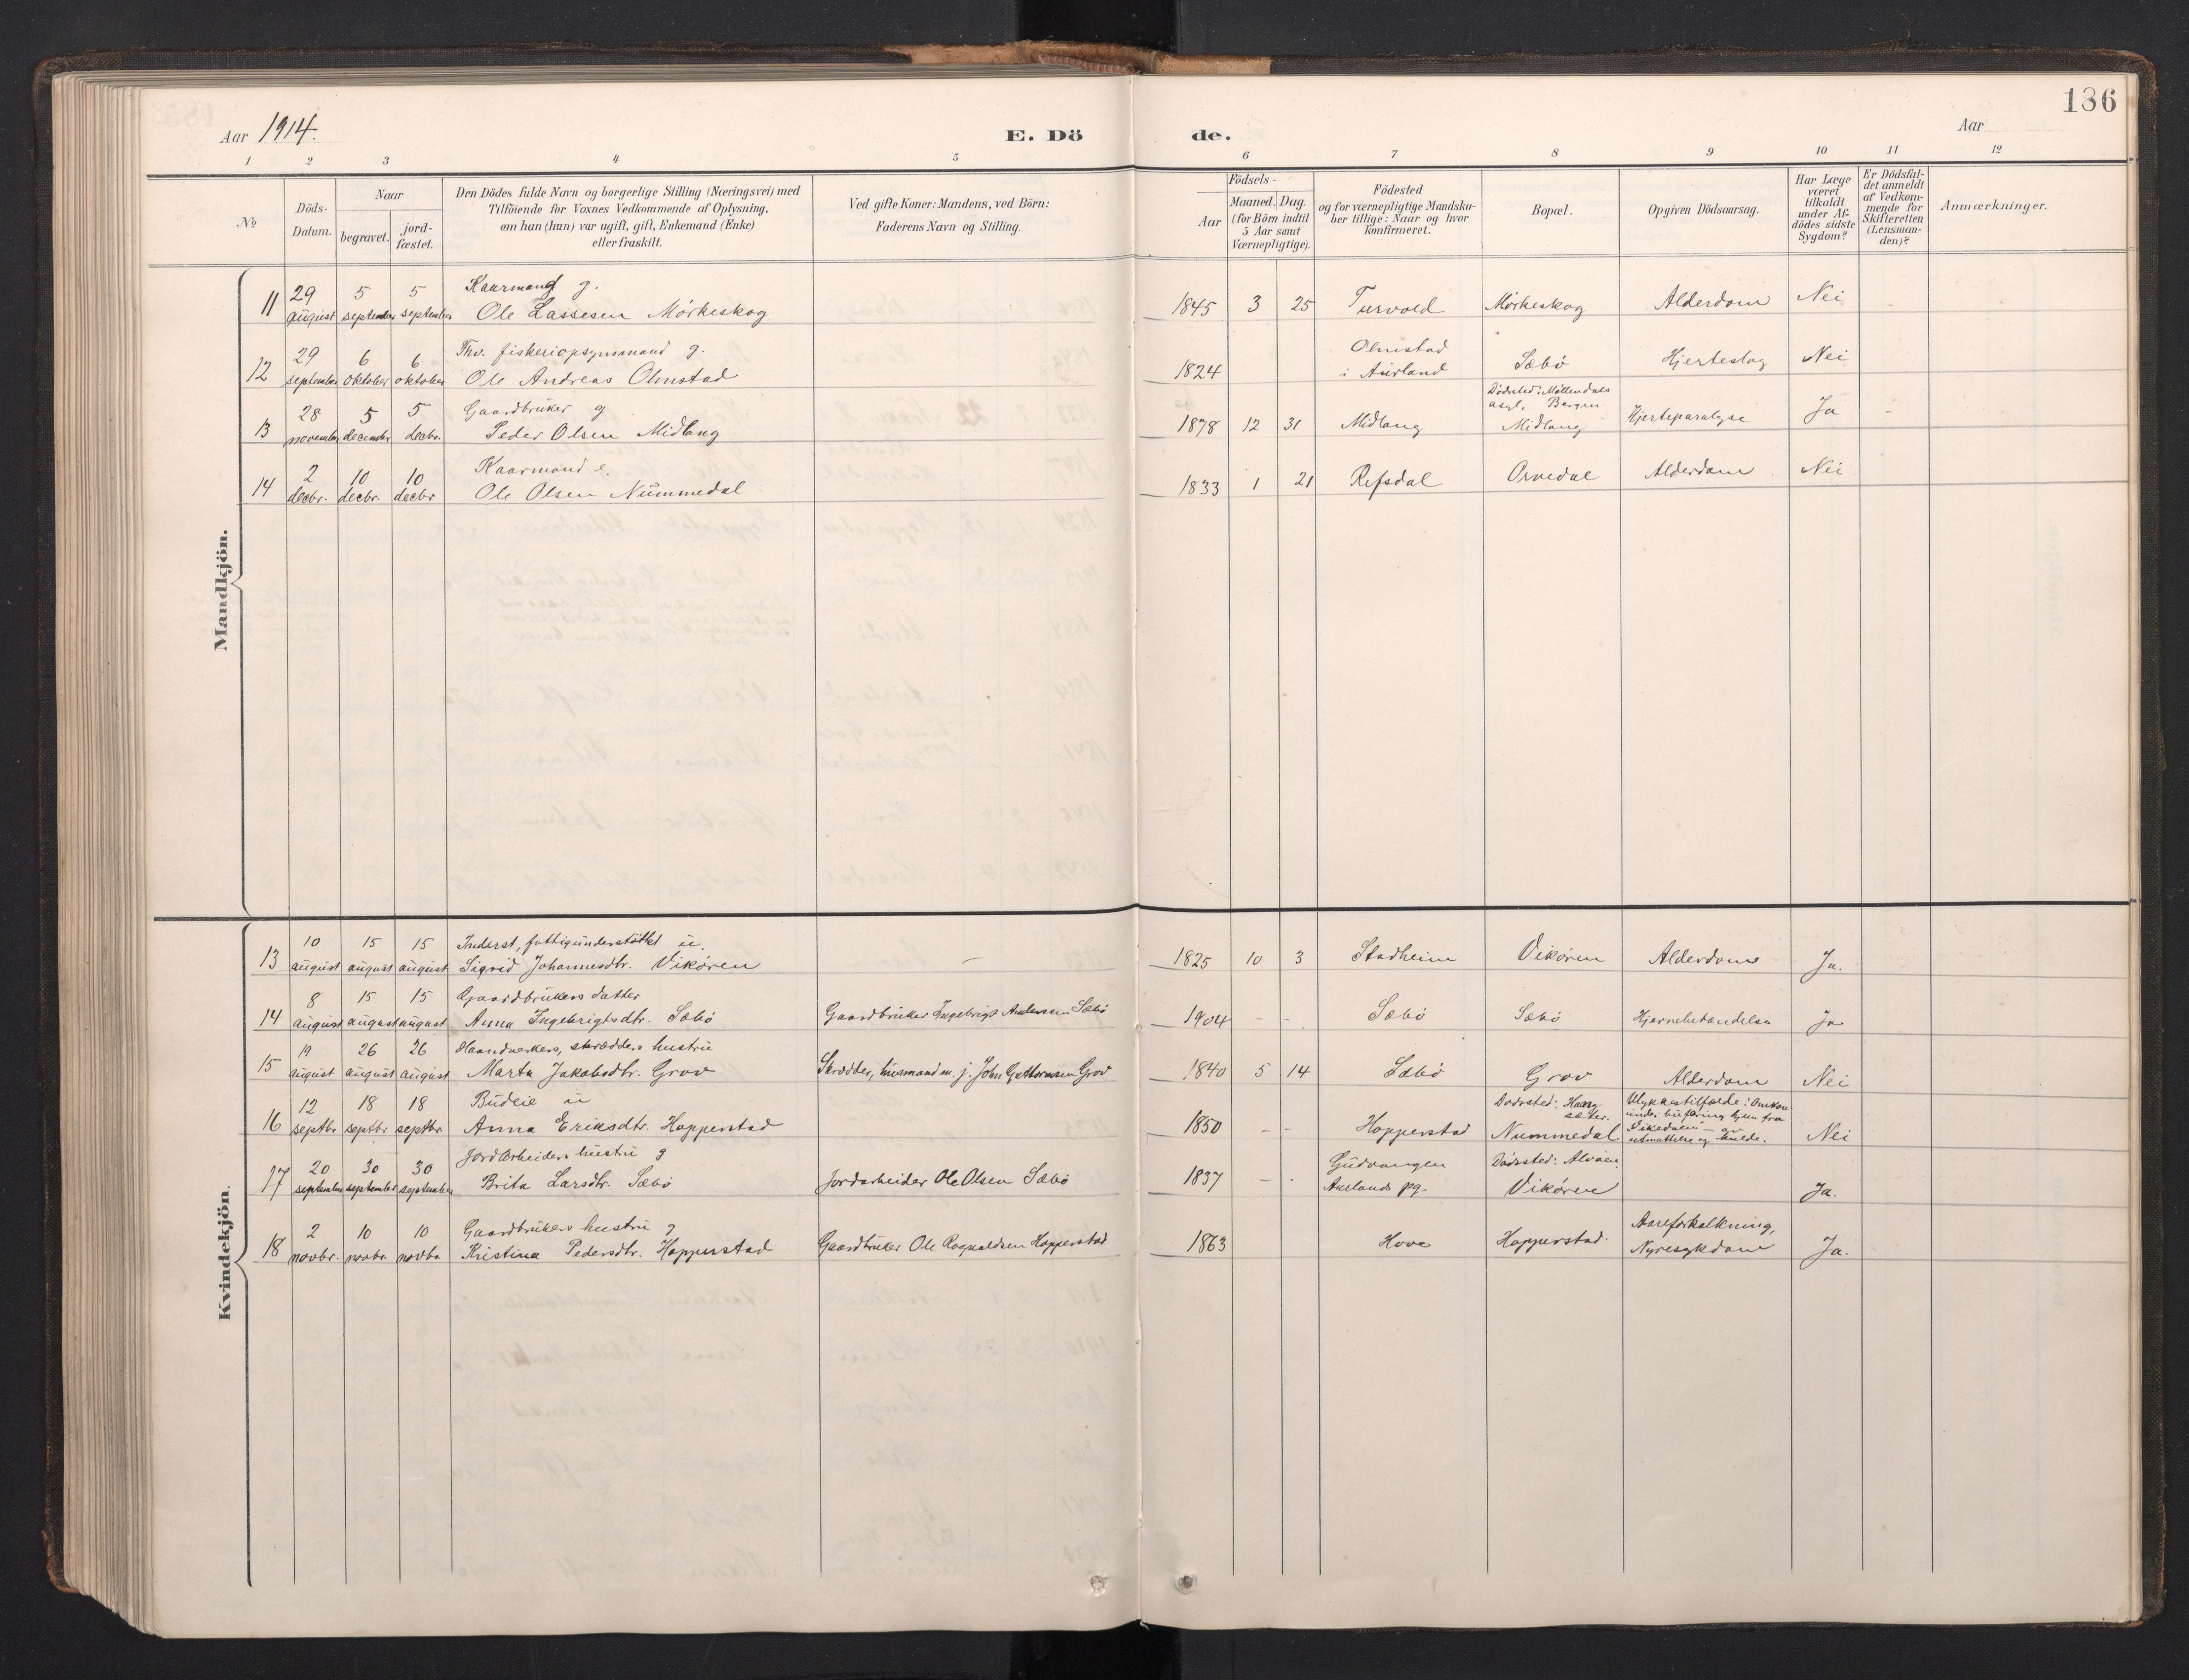 186
Aar 1914.
E. Dö
de.
Aar
1 2 3 4 5 6 7 8 9 10 11 12
No
Döds-
Datum.
Naar
begravet.
jord-
fæstet.
Den Dödes fulde Navn og borgerlige Stilling (Næringsvei) med
Tilföiende for Voxnes Vedkommende af Oplysning,
om han (hun) var ugift, gift, Enkemand (Enke)
eller fraskilt.
Ved gifte Koner: Mandens, ved Börn:
Faderens Navn og Stilling.
Födsels-
Aar
Maaned. Dag.
(for Börn indtil
5 Aar samt
Værnepligtige).
Födested
og for værnepligtige Mandska-
ber tillige: Naar og hvor
konfirmeret.
Bopæl.
Opgiven Dödsaarsag.
Har Læge
været
tilkaldt
under Af-
dödes sidste
Sygdom?
Er Dödsfal-
det anmeldt
af Vedkom-
mende for
Skifteretten
(Lensman-
den)?
Anmærkninger.
Mandkjön.
29 5 5 Kaarmand g.
11 august september september Ole Lassesen Mörkeskog 1845 3 25 Turvold Mörkeskog Alderdom Nei
29 6 6 Thv. fiskeriopsynsmand g. Olmstad
12 september oktober oktober Ole Andreas Olmstad 1824 i Aurland Sæbö Hjerteslag Nei
Dödssted: Möllendals
asyl, Bergen
28 5 5 Gaardbruker g
13 november december decbr. Peder Olsen Midlang 1878 12 31 Midlang Midlang Hjerteparalyse Ja -
2 10 10 Kaarmand e.
14 decbr. decbr. decbr Ole Olsen Nummedal 1833 1 21 Refsdal Orvedal Alderdom Nei
Kvindekjön.
10 15 15 Inderst, fattigunderstöttet u.
13 august august august Sigrid Johannesdtr. Vikören - 1825 10 3 Stadheim Vikören Alderdom Ja.
8 15 15 Gaardbrukers datter
14 august august august Anna Ingebrigtsdtr. Sæbö Gaardbruker Ingebrigt Andersen Sæbö 1904 - - Sæbö Sæbö Hjernebetændelse Ja
19 26 26 Haandverkers, skrædders hustru
15 august august august Marta Jakobsdtr. Grov Skrædder, husmand m. j. John Guttormsen Grov 1840 5 14 Sæbö Grov Alderdom Nei
12 18 18 Budeie u Dödssted: Haug
sæter. Ulykkestilfælde: Omkom
under buföring hjem fra
16 septbr septbr septbr. Anna Eriksdtr. Hopperstad 1850 - - Hopperstad Nummedal Vikedalen - av
utmattelse og kulde. Nei
20 30 30 Jordarbeiders hustru g Gudvangen Dödssted: Alvöen.
17 september september september Brita Larsdtr. Sæbö Jordarbeider Ole Olsen Sæbö 1837 - - Aurlands pg. Vikören Ja.
2 10 10 Gaardbrukers hustru g Aareforkalkning,
18 novbr. novbr. novbr. Kristina Pedersdtr. Hopperstad Gaardbruker Ole Ragnvaldsen Hopperstad 1863 Hove Hopperstad. Nyresykdom Ja.